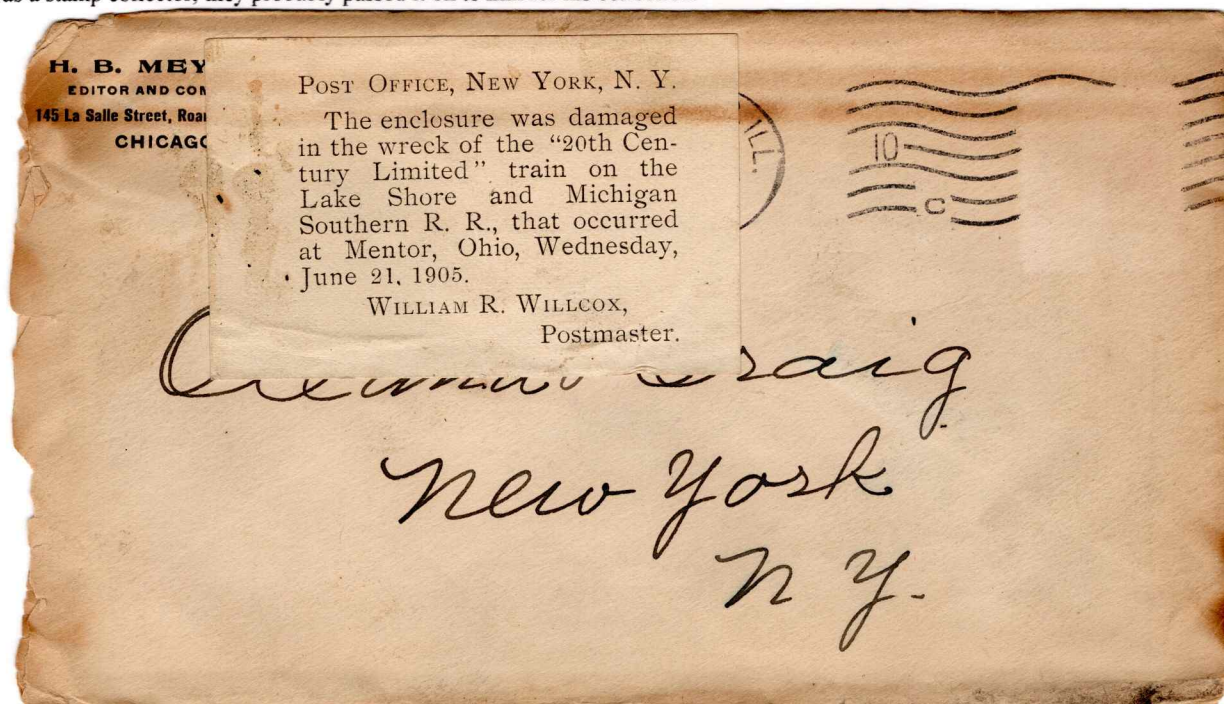 H. B. MEY
EDITOR AND COM
145 La Salle Street, Roa
CHICAGO
POST OFFICE, NEW YORK, N. Y.
The enclosure was damaged
in the wreck of the “20th Cen-
tury Limited” train on the
Lake Shore and Michigan
Southern R. R., that occurred
at Mentor, Ohio, Wednesday,
June 21, 1905.
WILLIAM R. WILLCOX,
Postmaster.
ILL.
10
C
Craig
New York
N Y.